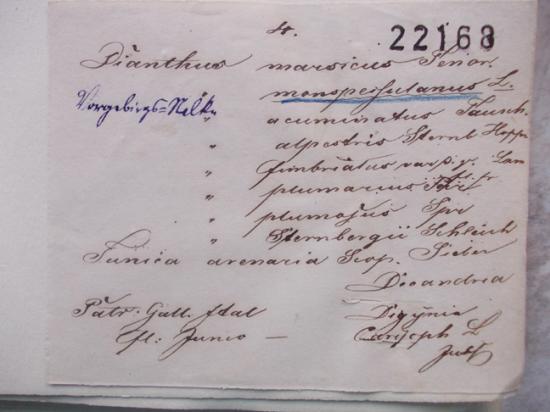 4.
22168
Dianthus marsicus Tenor.
Vorgebirgs=Nelk. monspessulanus L.
" acuminatus Tausch.
" alpestris Sternb Hopp
" fimbriatus var β.γ. Lam
" plumarius
" plumosus Spr
" Sternbergii Schleich
Tunica arenaria Scop. Sieber
Decandria
Patr. Gall. Ital Digynia
fl. Junio — Caryoph L